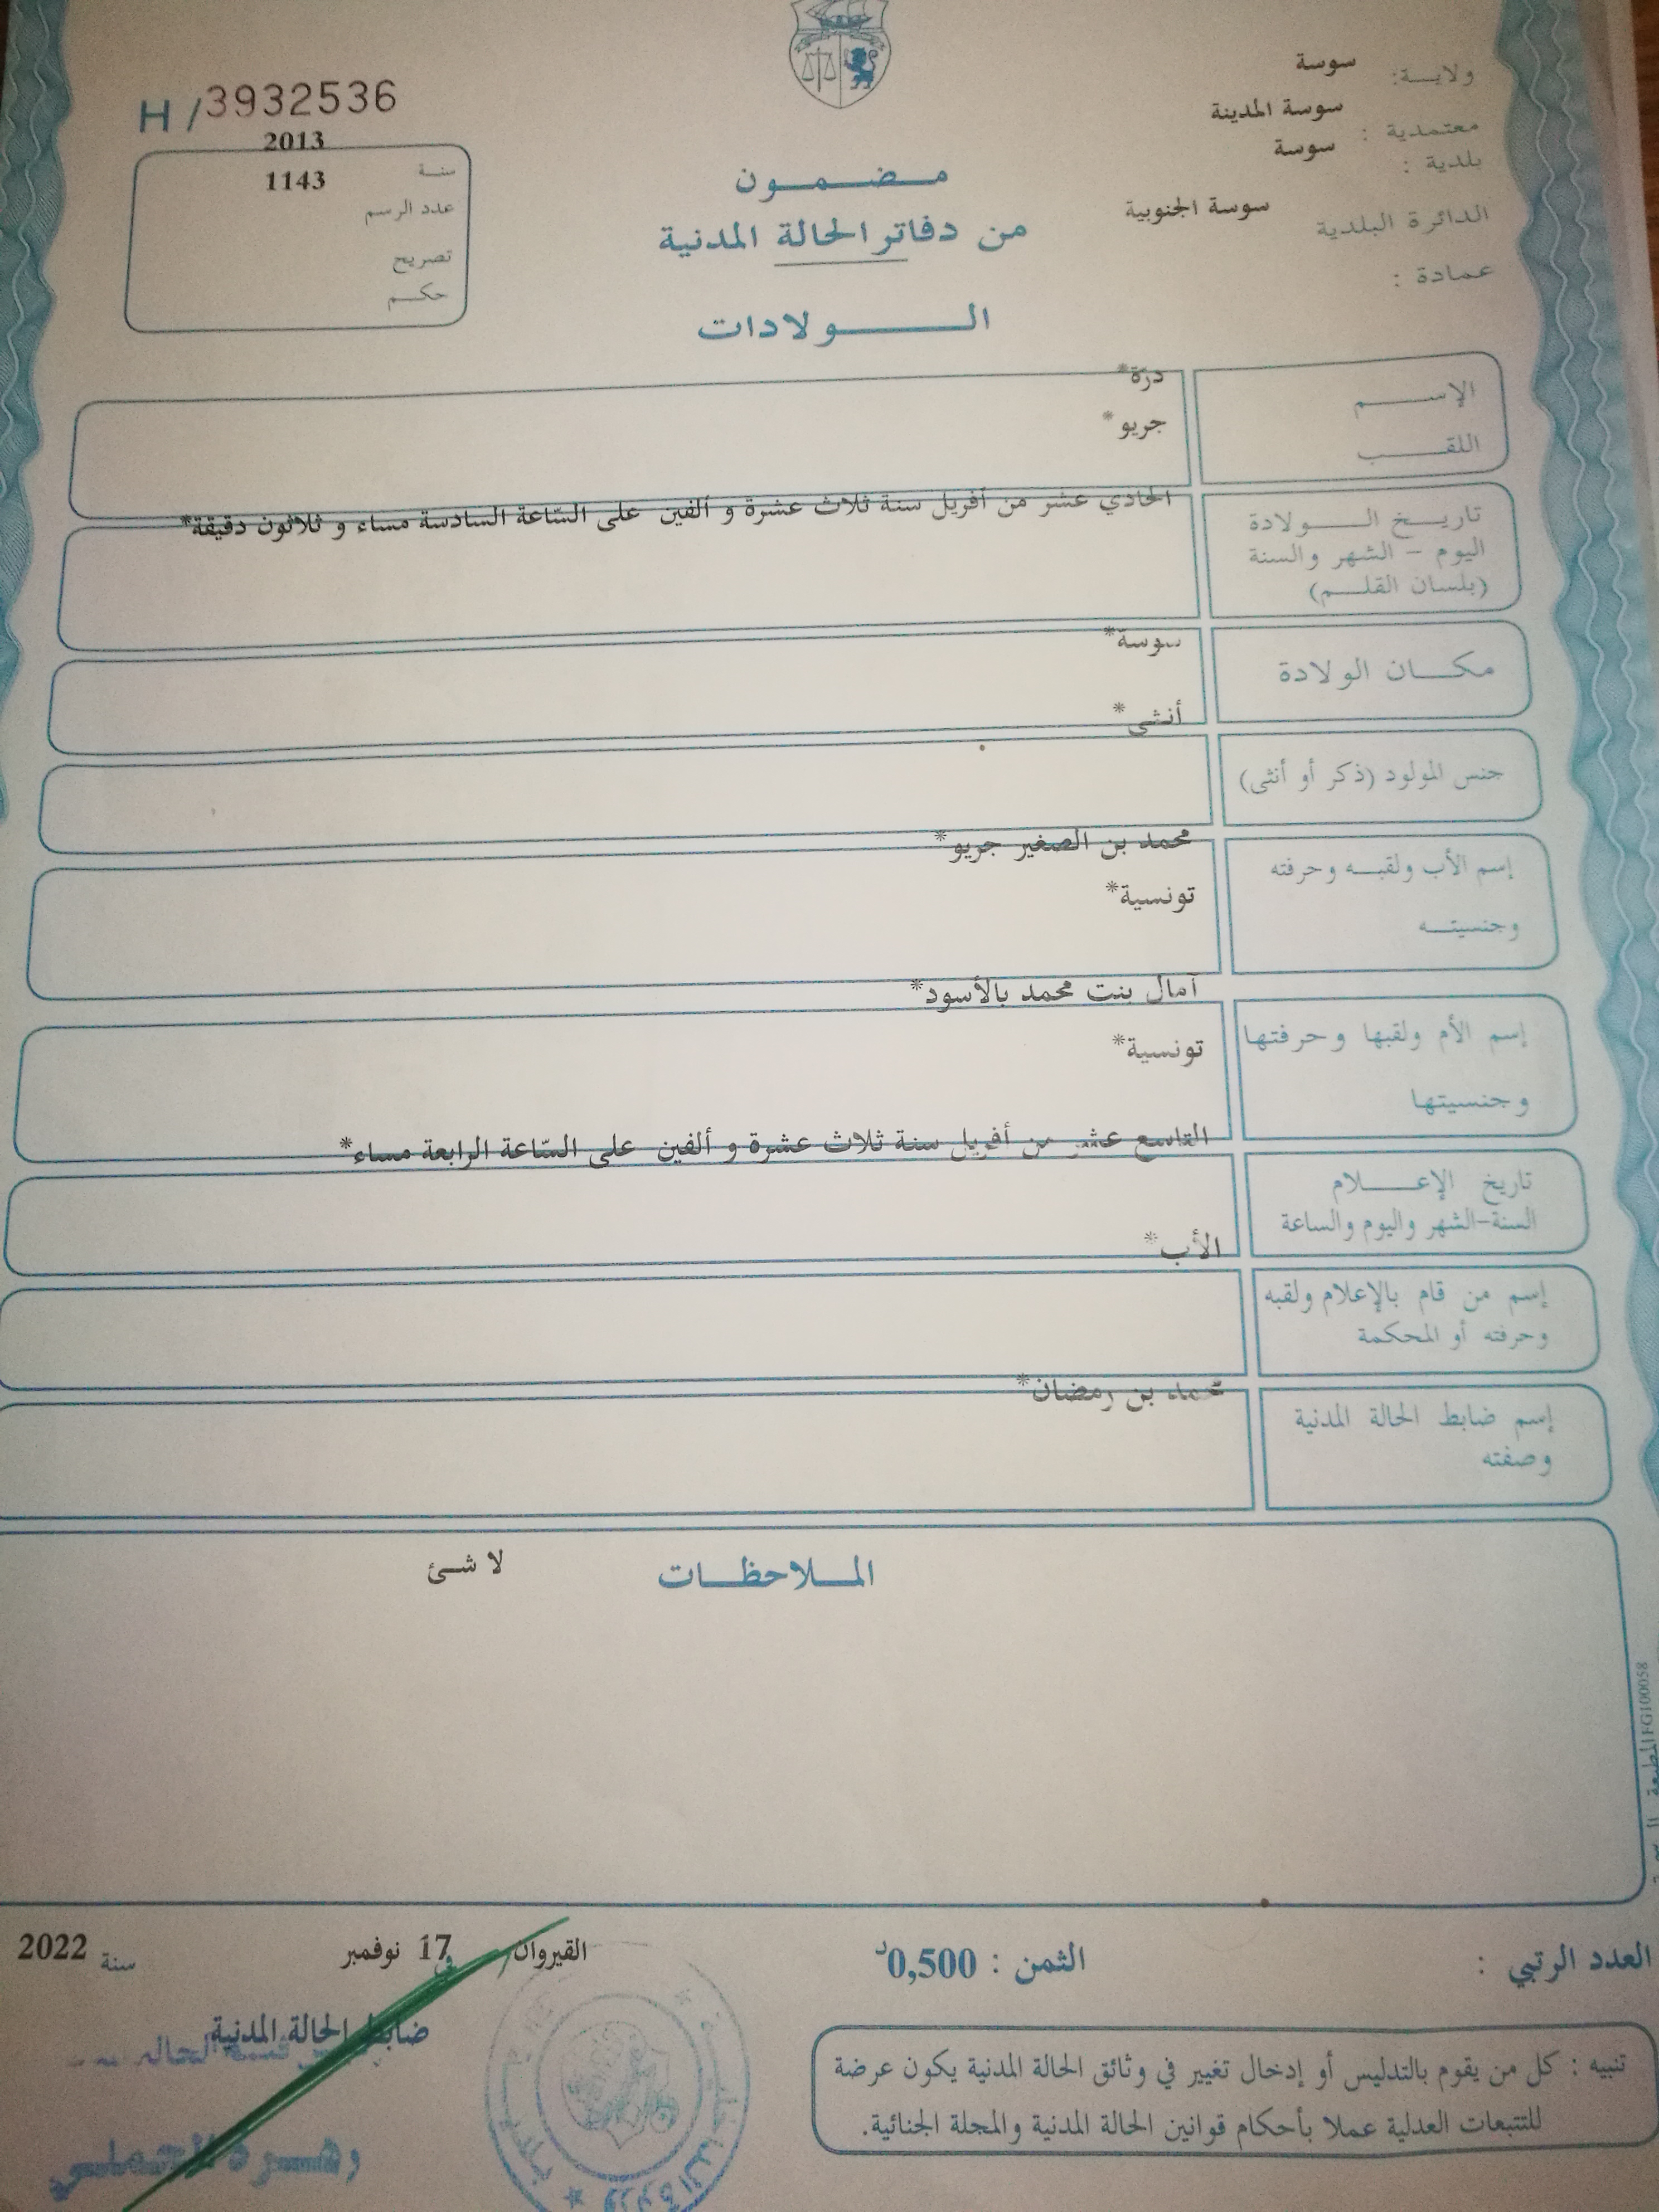 ولاية: سوسة
معتمدية : سوسة المدينة
بلدية : سوسة
الدائرة البلدية سوسة الجنوبية
عمادة :
H/3932536
2013
سنة
1143
عدد الرسم
تصريح
حكم
مضمون
من دفاتر الحالة المدنية
الولادات
الإسم
درة*
اللقب
جريو*
تاريخ الولادة
اليوم - الشهر والسنة
(بلسان القلم)
الحادي عشر من أفريل سنة ثلاث عشرة و ألفين على السّاعة السادسة مساء و ثلاثون دقيقة*
مكان الولادة
سوسة*
جنس المولود (ذكر أو أنثى)
أنثى*
إسم الأب ولقبه وحرفته
محمد بن الصغير جريو*
وجنسيته
تونسية*
إسم الأم ولقبها وحرفتها
آمال بنت محمد بالأسود*
وجنسيتها
تونسية*
تاريخ الإعلام
السنة-الشهر واليوم والساعة
التاسع عشر من أفريل سنة ثلاث عشرة و ألفين على السّاعة الرابعة مساء*
إسم من قام بالإعلام ولقبه
وحرفته أو المحكمة
الأب*
إسم ضابط الحالة المدنية
وصفته
محمد بن رمضان*
الملاحظات
لا شئ
FG100058
العدد الرتبي :
الثمن : 0,500د
القيروان في 17 نوفمبر سنة 2022
ضابط الحالة المدنية
تنبيه : كل من يقوم بالتدليس أو إدخال تغيير في وثائق الحالة المدنية يكون عرضة
للتتبعات العدلية عملا بأحكام قوانين الحالة المدنية والمجلة الجنائية.